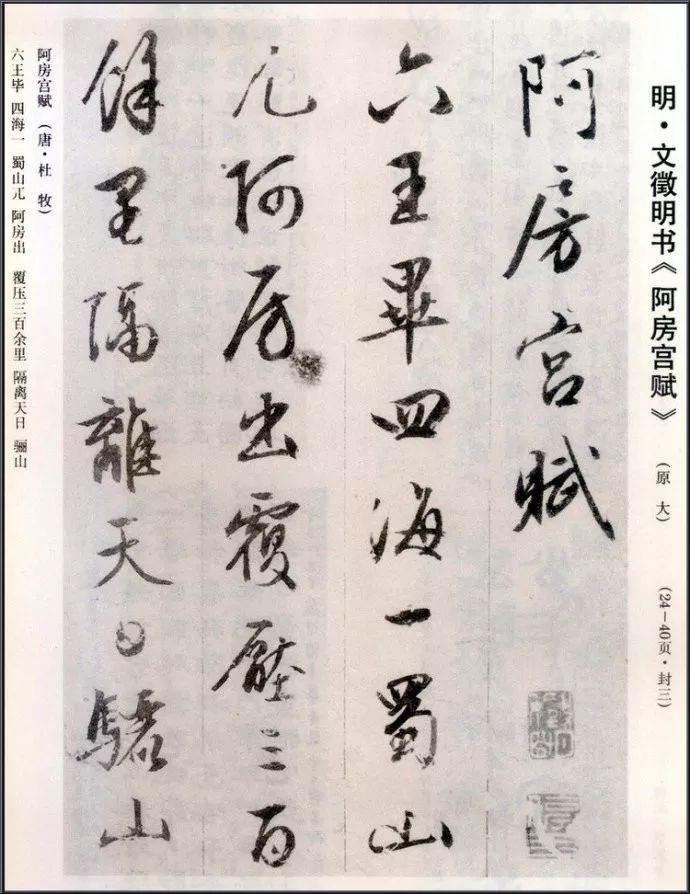 明·文徵明书《阿房宫赋》 (原大) (24—40页·封三)
阿房宫赋
六王畢四海一蜀山
兀阿房出覆壓三百
餘里隔離天日驪山
阿房宫赋 (唐·杜牧)
六王毕 四海一 蜀山兀 阿房出 覆压三百余里 隔离天日 骊山